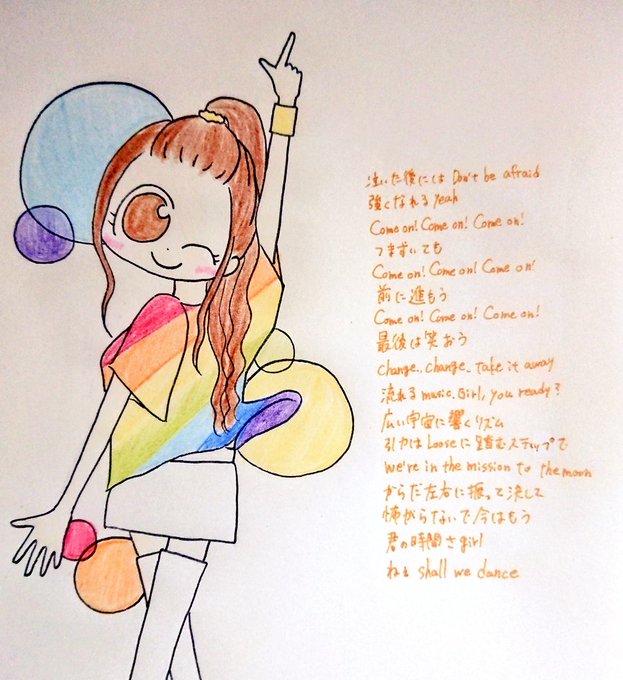 泣いた後には Don't be afraid
強くなれる Yeah
Come on! Come on! Come on!
つまずいても
Come on! Come on! Come on!
前に進もう
Come on! Come on! Come on!
最後は笑おう
Change.. change.. take it away
流れる music. Girl, you ready?
広い宇宙に響くリズム
引力は Looseに踏むステップで
we're in the mission to the moon
からだ左右に振って決して
怖がらないで今はもう
君の時間さ girl
ねぇ shall we dance